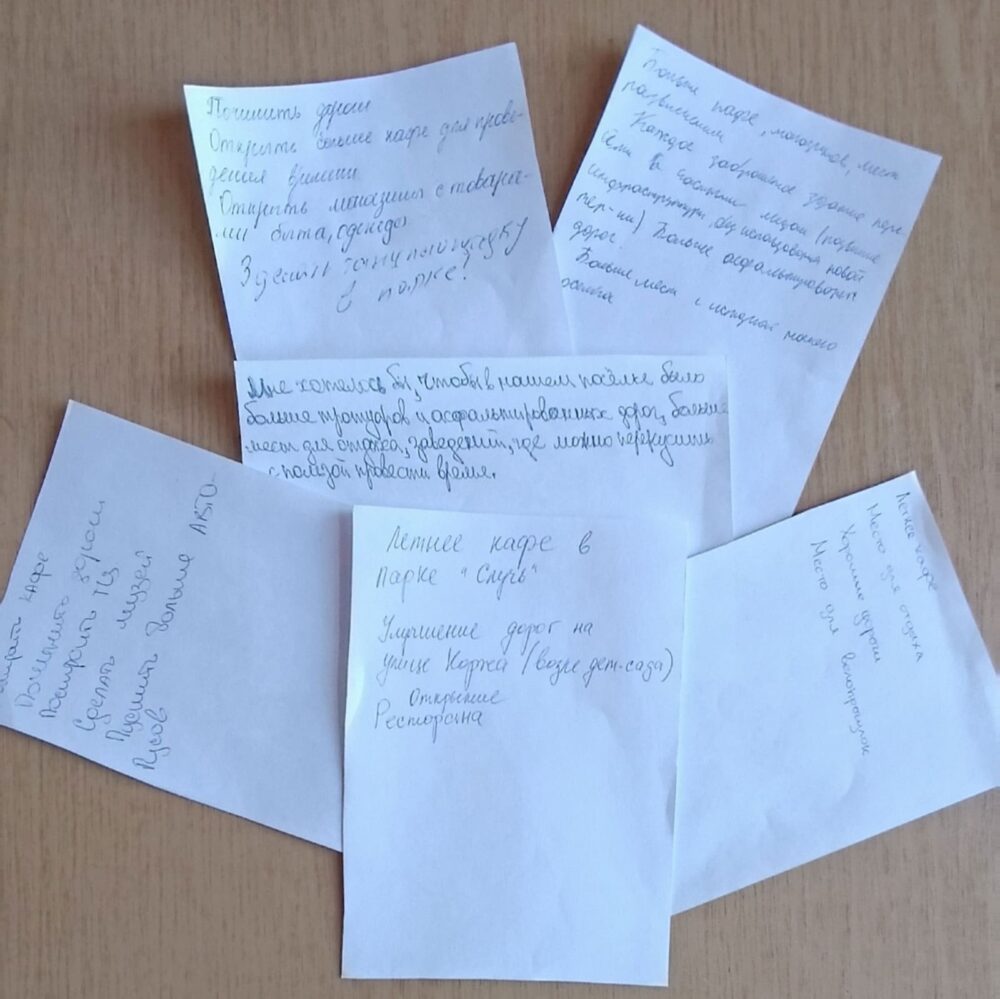 Починить дороги
Открыть больше кафе для прове-
дения времени
Открыть магазины с товара-
ми быта, одежды
Сделать танцплощадку
в парке!
Больше кафе, магазинов, мест
развлечения
Каждое заброшенное здание
(развитие
инфраструктуры без использования новой
тер-ии) Больше асфальтированных
дорог
Больше мест с историей нашего
посёлка
Мне хотелось бы, чтобы в нашем посёлке было
больше тротуаров и асфальтированных дорог, больше
мест для отдыха, заведений, где можно перекусить
с пользой провести время.
кафе
Починить дороги
Построить ТЦ
Сделать музей
Пустить больше авто-
бусов
Летнее кафе в
парке "Случь"
Улучшение дорог на
улице Коржа (возле дет.сада)
Открытие
Ресторана
Летнее кафе
Место для отдыха
Хорошие дороги
Место для велопрогулок